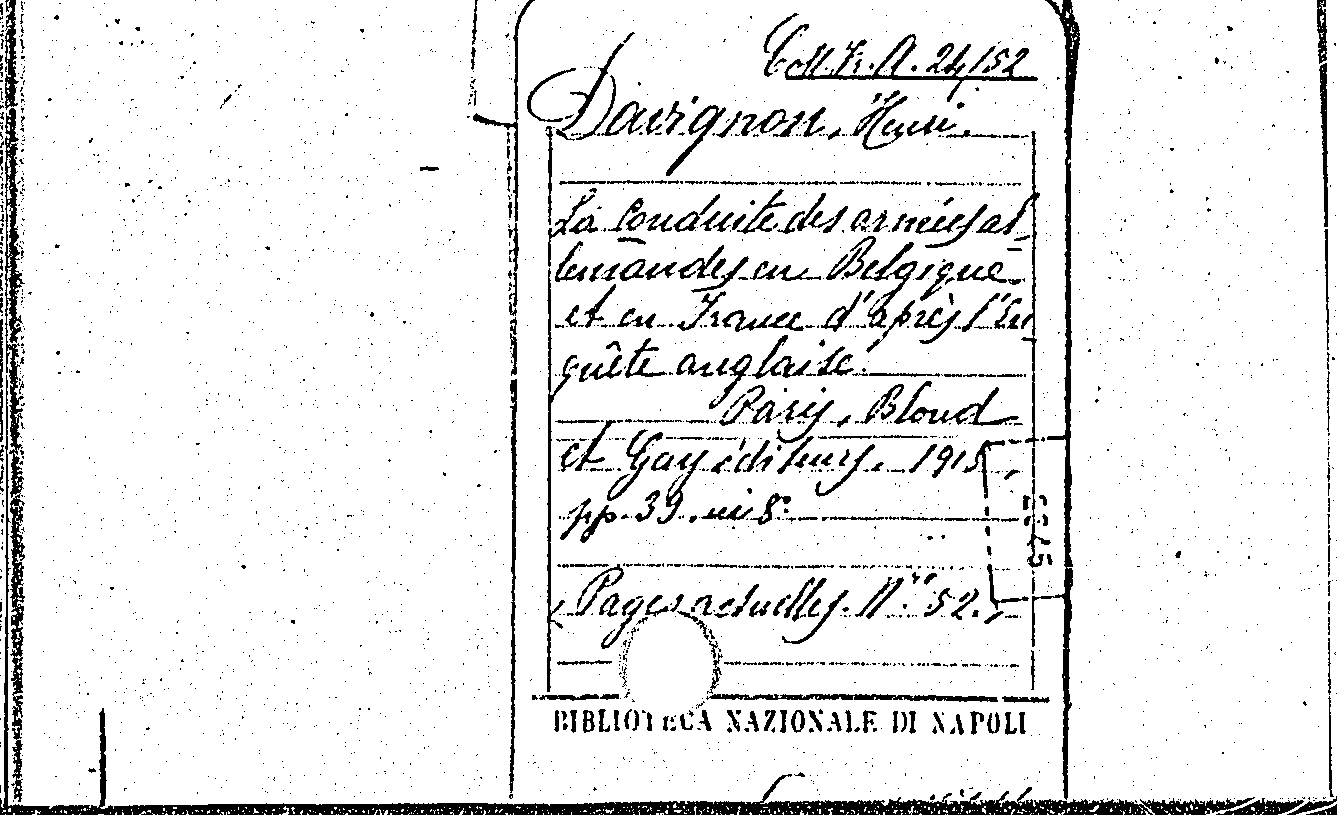 Coll. Fr. A. 24/52
Davignon, Henri.
La conduite des armées al-
lemandes en Belgique
et en France d'après l'En-
quête anglaise.
Paris, Bloud
et Gay éditeurs. 1915,
pp. 39. in 8°
(Pages actuelles. N.° 52.)
BIBLIOTECA NAZIONALE DI NAPOLI